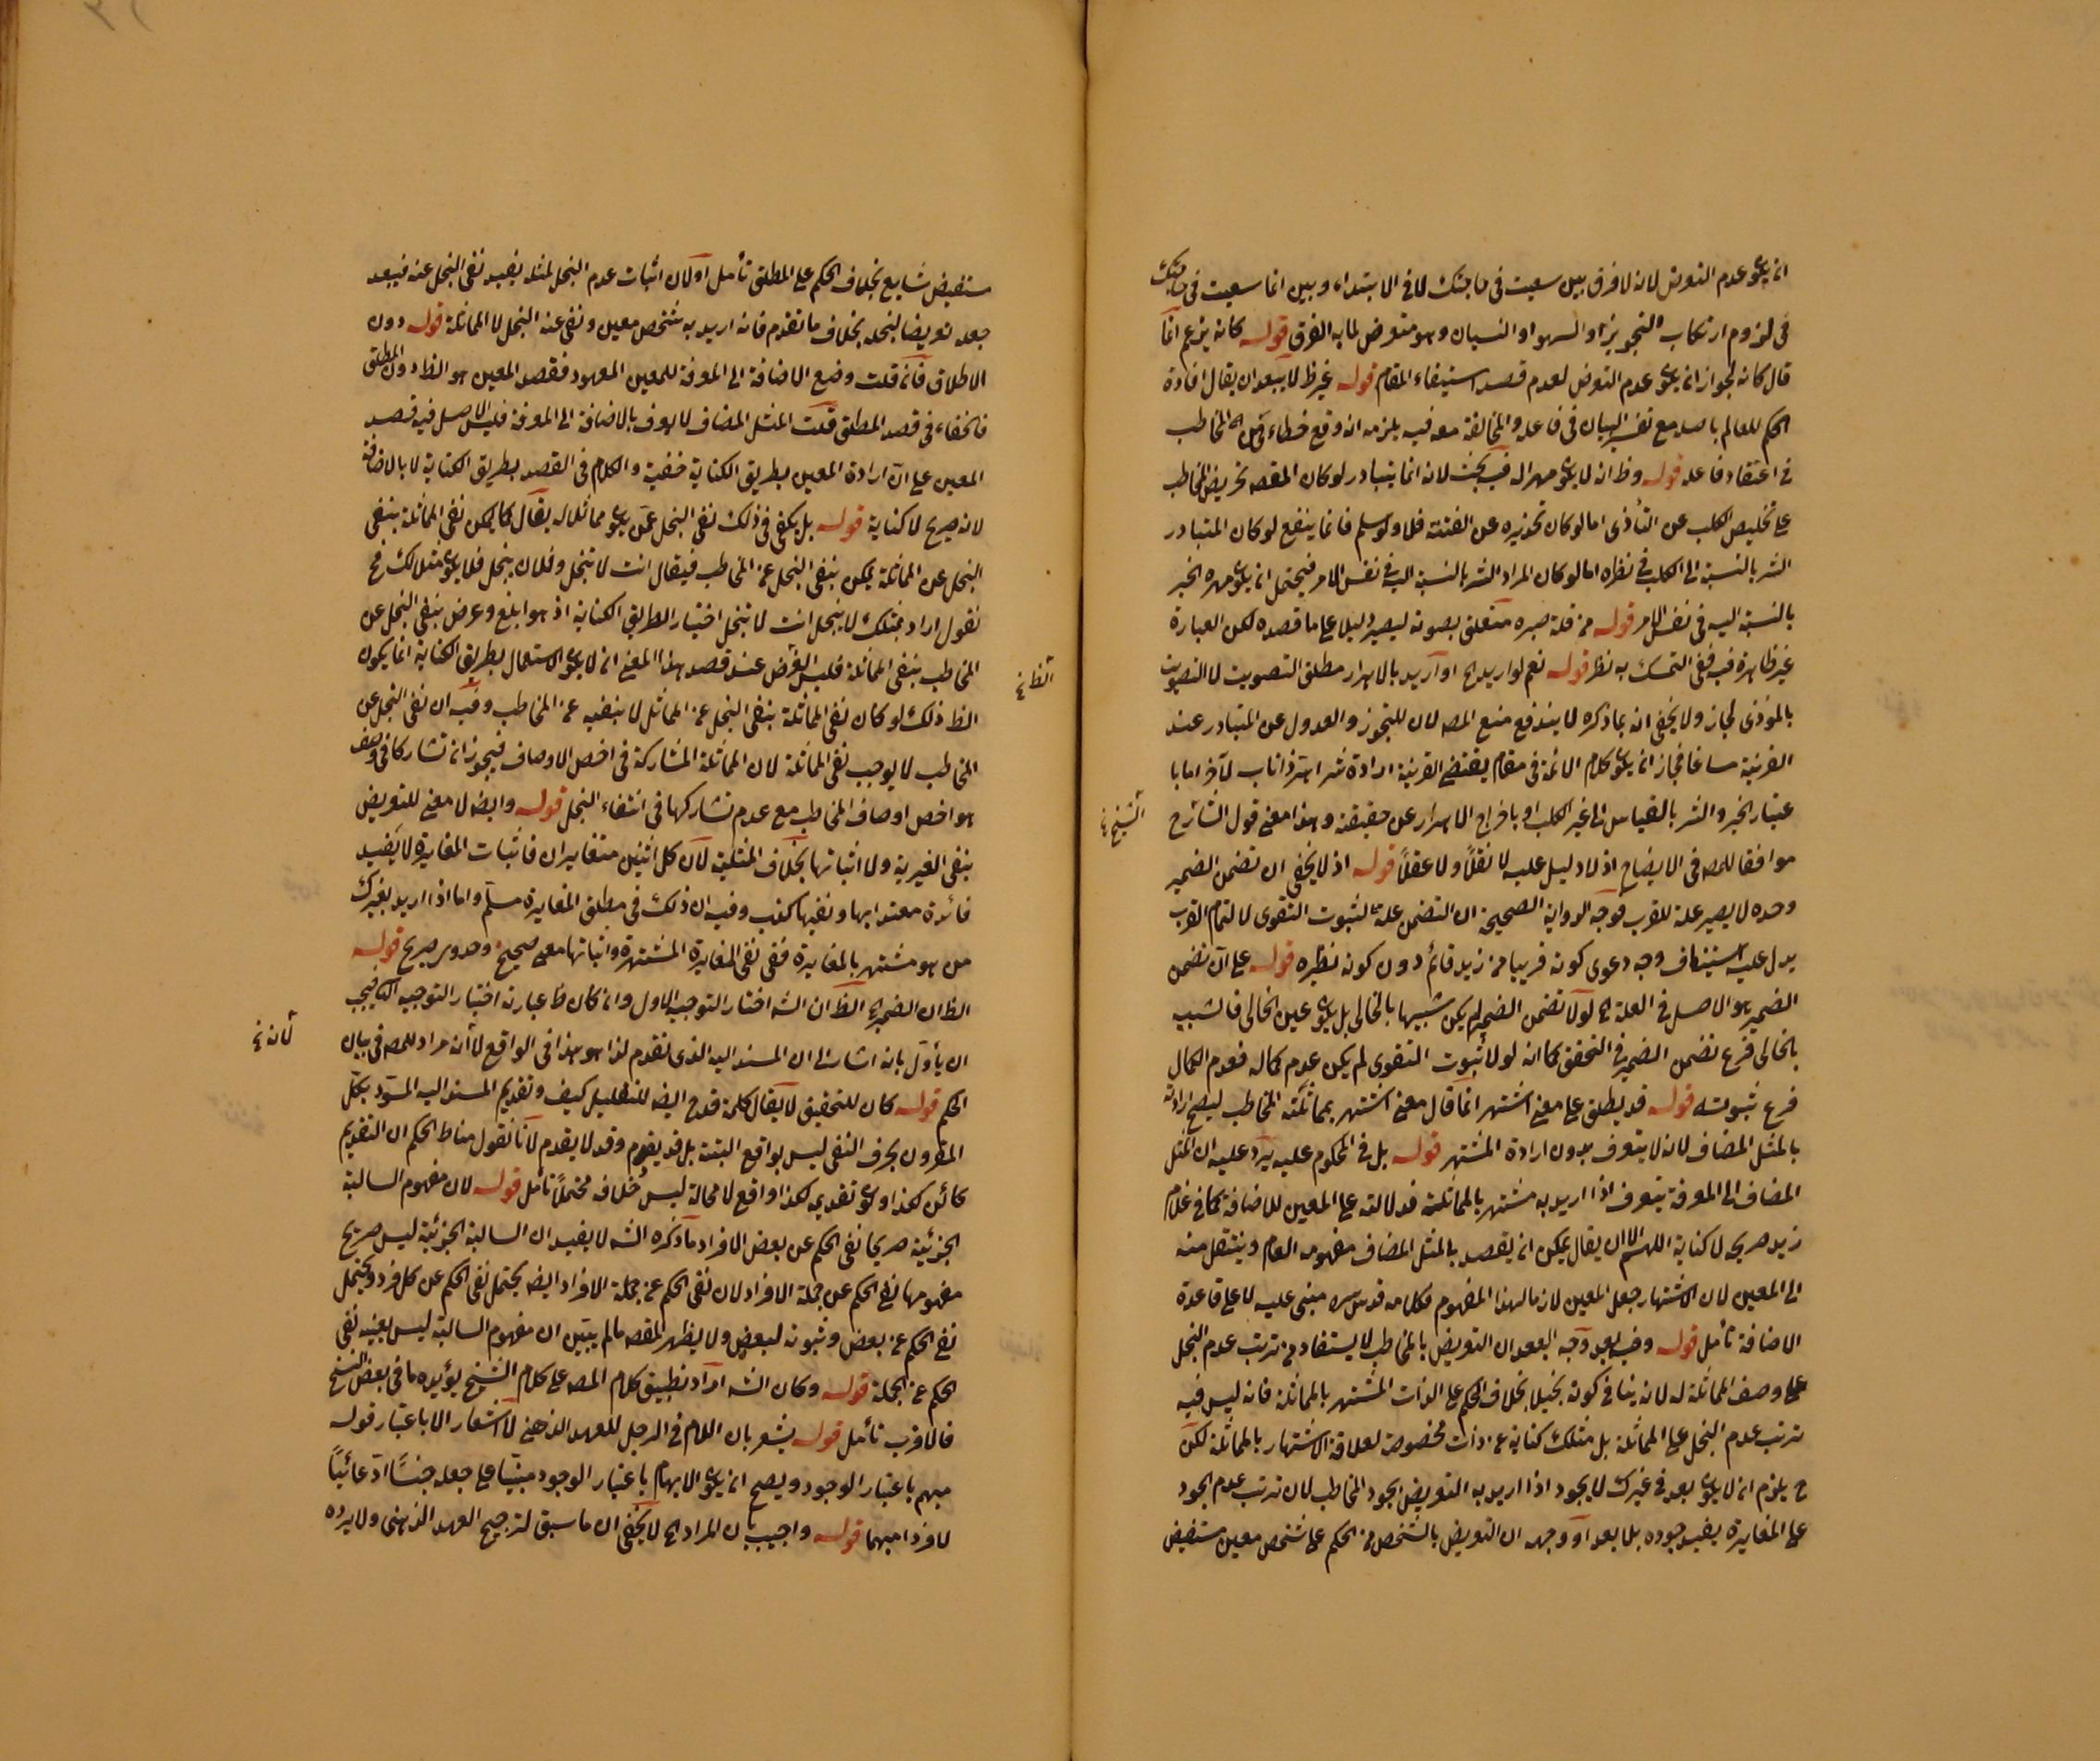 ان يكون عدم التعرض لانه لا فرق بين سعيت في حاجتك لا في الابتداء وبين انما سعيت في حاجتك
في لزوم ارتكاب التجوز او السهو او النسيان وهو متعرض لما به الفرق قوله كانه يزعم انما
قال كانه لجواز ان يكون عدم التعرض لعدم قصد استيفاء المقام قوله غير ظ لا يبعد ان يقال افادة
الحكم للعالم باصله مع تفسير البيان في فاعله والمخالفة معه فيه يلزمه انه وقع خطاء من المخاطب
في اعتقاد فاعله قوله وظ انه لا يكون مهر اله فيه بحث لانه انما يتبادر لو كان المقصود تحريض المخاطب
على تخليص الكلب عن التأذى اما لو كان تحذيره عن الفتنة فلا ولو سلم فانما ينفع لو كان المتبادر
الشر بالنسبة الى الكلب في نظره اما لو كان المراد الشر بالنسبة اليه في نفس الامر فيحتمل ان يكون مهره الخير
بالنسبة اليه في نفس الامر قوله من قلة صبره متعلق بصوته ليصير دليلا على ما قصده لكن العبارة
غير ظاهرة فيه ففي التمسك به نظر قوله نعم لو اريد الخ او اريد بالاهرار مطلق التصويت لا التصويت
بالموذى لجاز ولا يخفى انه بما ذكره لا يندفع منع المصـ لان للتجوز والعدول عن المتبادر عند
القرينة مساغا فجاز ان يكون كلام الائمة في مقام يقتضى القرينة ارادة شر اهر ذا ناب لآخر اما با
عتبار الخير والشر بالقياس الى غير الكلب او باخراج الاهرار عن حقيقته وهذا معنى قول الشارح
موافقا للمصـ في الايضاح اذ لا دليل عليه لا نقلاً ولا عقلاً قوله اذ لا يخفى ان تضمن الضمير
وحده لا يصير علة للقرب فوجه الرواية الصحيحة ان التضمن علة لثبوت التقوى لا لتمام القرب
يدل عليه استيناف وجه دعوى كونه قريبا من زيد قائم دون كونه نظيره قوله على ان تضمن
الضمير هو الاصل في العلة الخ لولا تضمن الضمير لم يكن شبيها بالخالى بل يكون عين الخالى فالشبيه
بالخالى فرع تضمن الضمير في التحقق كما انه لولا ثبوت التقوى لم يكن عدم كماله فعدم الكمال
فرع ثبوته قوله قد يطلق على معنى اشتهر انما قال معنى اشتهر بمماثلته المخاطب ليصح ارادته
بالمثل المضاف لانه لا يتعرف بدون ارادة المشتهر قوله بل في المحكوم عليه يرد عليه ان المثل
المضاف الى المعرفة يتعرف اذا اريد به مشتهر بالمماثلة فدلالته على المعين للاضافة كما في غلام
زيد صريح لا كناية اللهم الا ان يقال يمكن ان يقصد بالمثل المضاف مفهومه العام وينتقل منه
الى المعين لان الاشتهار جعل المعين لازما لهذا المفهوم فكلامه قدس سره مبنى عليه لا على قاعدة
الاضافة تأمل قوله وفيه بعد وجه البعد ان التعريض بالمخاطب لا يستفاد من ترتب عدم البخل
على وصف المماثلة له لانه ينافى كونه بخيلا بخلاف الحكم على الذات المشتهر بالمماثلة فانه ليس فيه
ترتب عدم البخل على المماثلة بل مثلك كناية عن ذات مخصوصة لعلاقة الاشتهار بالمماثلة لكن
ح يلزم ان لا يكون بعد في غيرك لا يجود اذا اريد به التعريض بجود المخاطب لان ترتب عدم الجود
على المغايرة يفيد جوده بلا بعد او وجهه ان التعريض بالشخص من الحكم على شخص معين مستفيض
الشيخ خ
مستفيض شايع بخلاف الحكم على المطلق تأمل او لان اثبات عدم البخل لمثله يفيد نفى البخل عنه فيبعد
جعله تعريضا لبخله بخلاف ما تقدم فانه اريد به شخص معين ونفى عنه البخل لا المماثلة قوله دون
الاطلاق فان قلت وضع الاضافة الى المعرفة للمعين المعهود فقصد المعين هو الظ دون المطلق
فالخفاء في قصد المطلق قلت المثل المضاف لا يعرف بالاضافة الى المعرفة فليس الاصل فيه قصد
المعين على ان ارادة المعين بطريق الكناية خفية والكلام في القصد بطريق الكناية لا بالاضافة
لانه صريح لا كناية قوله بل يكفى في ذلك نفى البخل عمن يكون مماثلا له يقال كما يمكن نفى المماثلة بنفى
البخل عن المماثلة يمكن بنفى البخل عن المخاطب فيقال انت لا تبخل وفلان يبخل فلا يكون مثلا لك فح
نقول اراد بمثلك لا يبخل انت لا تبخل اختيار الطريق الكناية اذ هو ابلغ وعرض بنفى البخل عن
المخاطب بنفى المماثلة فليس الغرض عند قصد هذا المعنى ان لا يكون الاستعمال بطريق الكناية انما يكون
الظ ذلك لو كان نفى المماثلة بنفى البخل عن المماثل لا بنفيه عن المخاطب وفيه ان نفى البخل عن
المخاطب لا يوجب نفى المماثلة لان المماثلة المشاركة في اخص الاوصاف فيجوز ان تشاركا في وصف
هو اخص اوصاف المخاطب مع عدم تشاركها في انتفاء البخل قوله وايضا لا معنى للتعريض
بنفى الغيرية ولا اثباتها بخلاف المثلية لان كل اثنين متغايران فاثبات المغايرة لا يفيد
فائدة معتدا بها ونفيها كذب وفيه ان ذلك في مطلق المغايرة مسلم واما اذا اريد بغيرك
من هو مشتهر بالمغايرة ففى نفى المغايرة المشتهرة واثباتها معنى صحيح وحدوس صريح قوله
الظ ان الضمير الخ الظ ان الشـ اختار التوجيه الاول وان كان ظ عبارته اختيار التوجيه الثانى فيجب
ان يأول بانه اشار الى ان المسند اليه الذى تقدم لذا هو هذا في الواقع لا أن مراد المصـ في بيان
الحكم قوله كان للتحقيق لا يقال كلمة قد ح ايضا للتقليل كيف وتقديم المسند اليه المسود بكل
المقرون بحرف النفى ليس بواقع البتة بل قد يقدم وقد لا يقدم لانا نقول مناط الحكم ان التقديم
كائن كذا وكون تقديمه كذا واقع لا محالة ليس خلافه محتملاً تأمل قوله لان مفهوم السالبة
الجزئية صريحا نفى الحكم عن بعض الافراد ما ذكره الشـ لا يفيد ان السالبة الجزئية ليس صريح
مفهومها نفى الحكم عن جملة الافراد لان نفى الحكم عن جملة الافراد ايضا يحتمل نفى الحكم عن كل فرد ويحتمل
نفى الحكم عن بعض وثبوته لبعض ولا يظهر المقصـ ما لم يتبين ان مفهوم السالبة ليس بعينه نفى
الحكم عن الجملة قوله وكان الشـ اراد تطبيق كلام المصـ على كلام الشيخ يؤيده ما في بعض النسخ
فالاقرب تأمل قوله يشعر بان اللام في الرجل للعهد الذهنى لا اشعار الا باعتبار قوله
مبهم باعتبار الوجود ويصح ان يكون الابهام باعتبار الوجود مبنيّا على جعله جنسًا ادعائيًا
لا فردا مبهما قوله واجيب بان المراد الخ لا يخفى ان ما سبق لترجيح العهد الذهنى ولا يرده
الظ خ
لانه خ